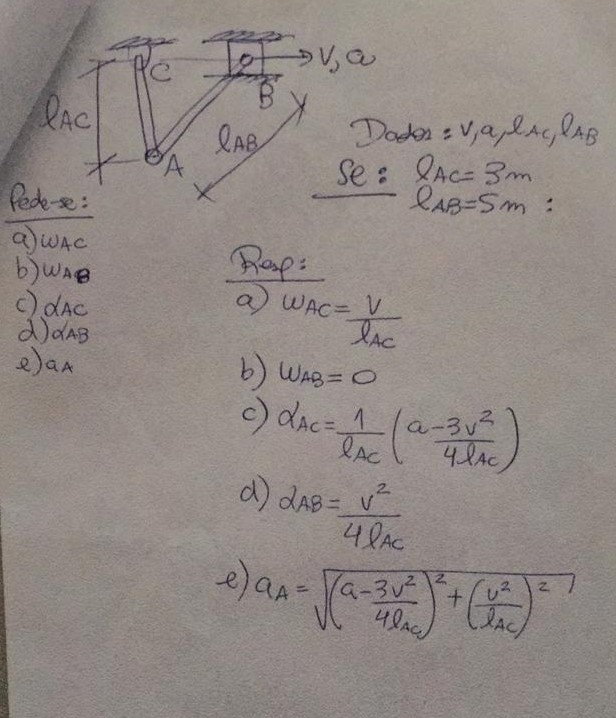 C
V, a
B
lAC
lAB
A
Dados: V, a, lAC, lAB
Se: lAC = 3m
lAB = 5m :
Pede-se:
a) ωAC
b) ωAB
c) αAC
d) αAB
e) aA
Resp:
a) ωAC = V/lAC
b) ωAB = 0
c) αAC = 1/lAC (a - 3v²/4lAC)
d) αAB = v²/4lAC
e) aA = √((a - 3v²/4lAC)² + (v²/lAC)²)